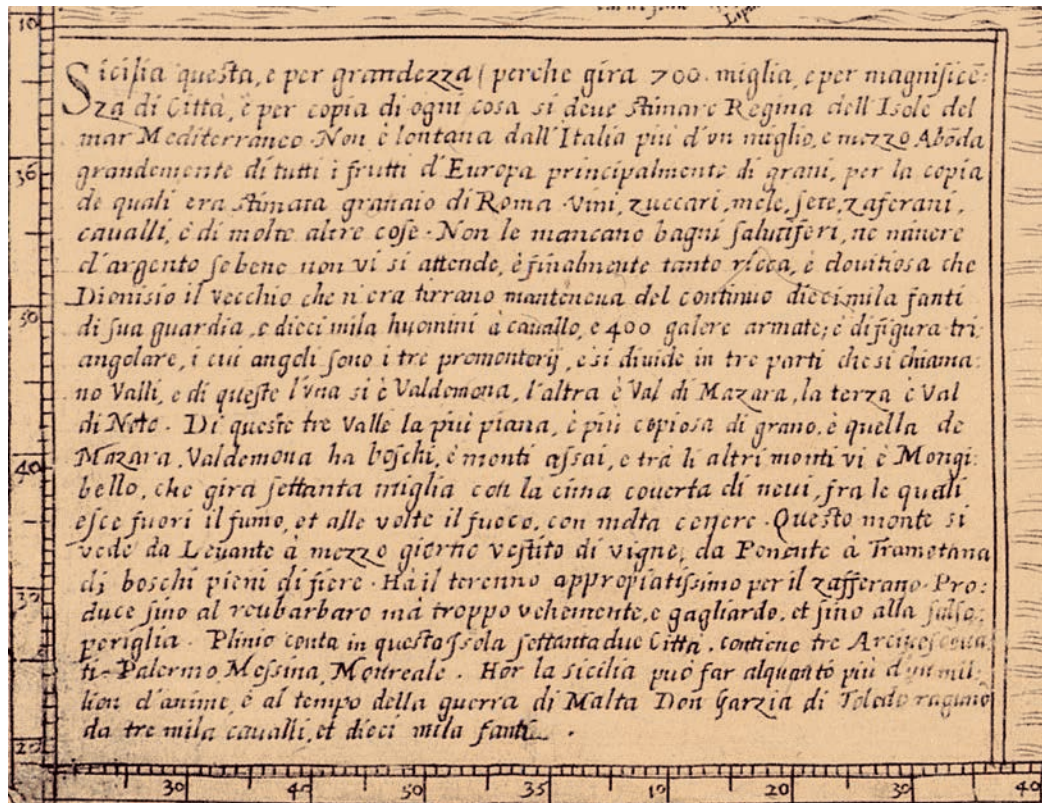 Lipa
10
Sicilia questa, e per grandezza ( perche gira 700. miglia, e per magnificē-
za di Città, è per copia di ogni cosa si deue stimare Regina dell'Isole del
mar Mediterraneo. Non è lontana dall'Italia più d'vn miglio, e mezzo Abōda
grandemente di tutti i frutti d'Europa principalmente di grani, per la copia
36
de quali era stimata granaio di Roma. Vini, zuccari, mele, sete, zaferani,
caualli, è di molte altre cose. Non le mancano bagni salutiferi, ne minere
d'argento se bene non vi si attende, è finalmente tanto ricca, è douitiosa che
Dionisio il vecchio che n'era tirrano manteneua del continuo diecimila fanti
50
di sua guardia, e dieci mila huomini à cauallo, e 400 galere armate; è di figura tri-
angolare, i cui angoli sono i tre promontorij, e si diuide in tre parti che si chiama-
no Valli, e di queste l'vna si è Valdemona, l'altra è Val di Mazara, la terza è Val
di Noto. Di queste tre Valle la più piana, è più copiosa di grano, è quella de
40
Mazara. Valdemona ha boschi, è monti assai, e trà li altri monti vi è Mongi-
bello, che gira settanta miglia con la cima couerta di neui, fra le quali
esce fuori il fumo, et alle volte il fuoco, con molta cenere. Questo monte si
vede da Leuante à mezzo giorno vestito di vigne, da Ponente à Tramotana
di boschi pieni di fiere. Hà il terenno appropiatissimo per il zafferano. Pro-
duce sino al reubarbaro mà troppo vehemente, e gagliardo, et sino alla salso-
periglia. Plinio conta in questo Isola settantadue Città, contiene tre Arciuescoua-
ti. Palermo, Messina, Monreale. Hor la sicilia può far alquanto più d'vn mil-
lion d'anime, è al tempo della guerra di Malta Don Garzia di Toledo ragunò
da tre mila caualli, et dieci mila fanti.
20
30 40 50 35 10 20 30 40